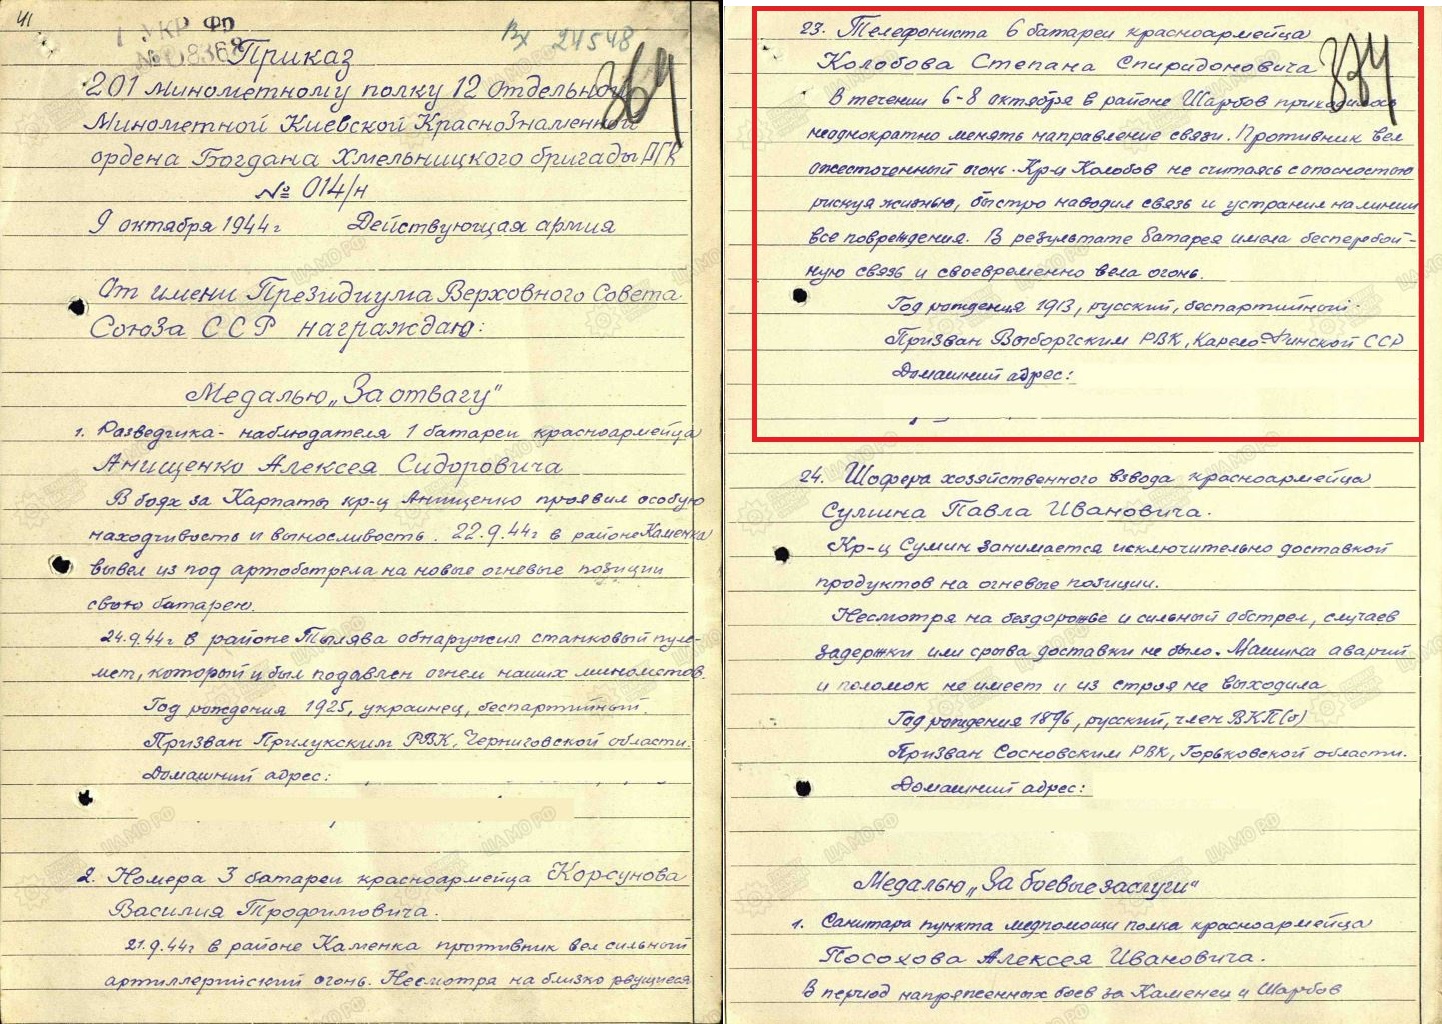 41
1 УКР ФР
№ 08368
Вх 24548
Приказ
201 Минометному полку 12 Отдельной
Минометной Киевской Краснознаменной
ордена Богдана Хмельницкого бригады РГК
№ 014/н
9 октября 1944г Действующая армия
От имени Президиума Верховного Совета
Союза ССР награждаю:
Медалью „За отвагу"
1. Разведчика-наблюдателя 1 батареи красноармейца
Анищенко Алексея Сидоровича
В боях за Карпаты кр-ц Анищенко проявил особую
находчивость и выносливость. 22.9.44г в районе Каменка
вывел из под артобстрела на новые огневые позиции
свою батарею.
24.9.44г в районе Тылява обнаружил станковый пуле-
мет, который и был подавлен огнем наших минометов.
Год рождения 1925, украинец, беспартийный.
Призван Прилукским РВК, Черниговской области.
Домашний адрес:
2. Номера 3 батареи красноармейца Корсунова
Василия Трофимовича.
21.9.44г в районе Каменка противник вел сильный
артиллерийский огонь. Несмотря на близко рвущиеся
23. Телефониста 6 батареи красноармейца
Колобова Степана Спиридоновича
В течении 6-8 октября в районе Шарбов приходилось
неоднократно менять направление связи. Противник вел
ожесточенный огонь. Кр-ц Колобов не считаясь с опасностью
рискуя жизнью, быстро наводил связь и устранил на линии
все повреждения. В результате батарея имела бесперебой-
ную связь и своевременно вела огонь.
Год рождения 1913, русский, беспартийный.
Призван Выборгским РВК, Карело-Финской ССР
Домашний адрес:
24. Шофера хозяйственного взвода красноармейца
Сумина Павла Ивановича.
Кр-ц Сумин занимается исключительно доставкой
продуктов на огневые позиции.
Несмотря на бездорожье и сильный обстрел, случаев
задержки или срыва доставки не было. Машина аварий
и поломок не имеет и из строя не выходила
Год рождения 1896, русский, член ВКП(б)
Призван Сосновским РВК, Горьковской области.
Домашний адрес:
Медалью „За боевые заслуги"
1. Санитара пункта медпомощи полка красноармейца
Посохова Алексея Ивановича.
В период напряженных боев за Каменец и Шарбов